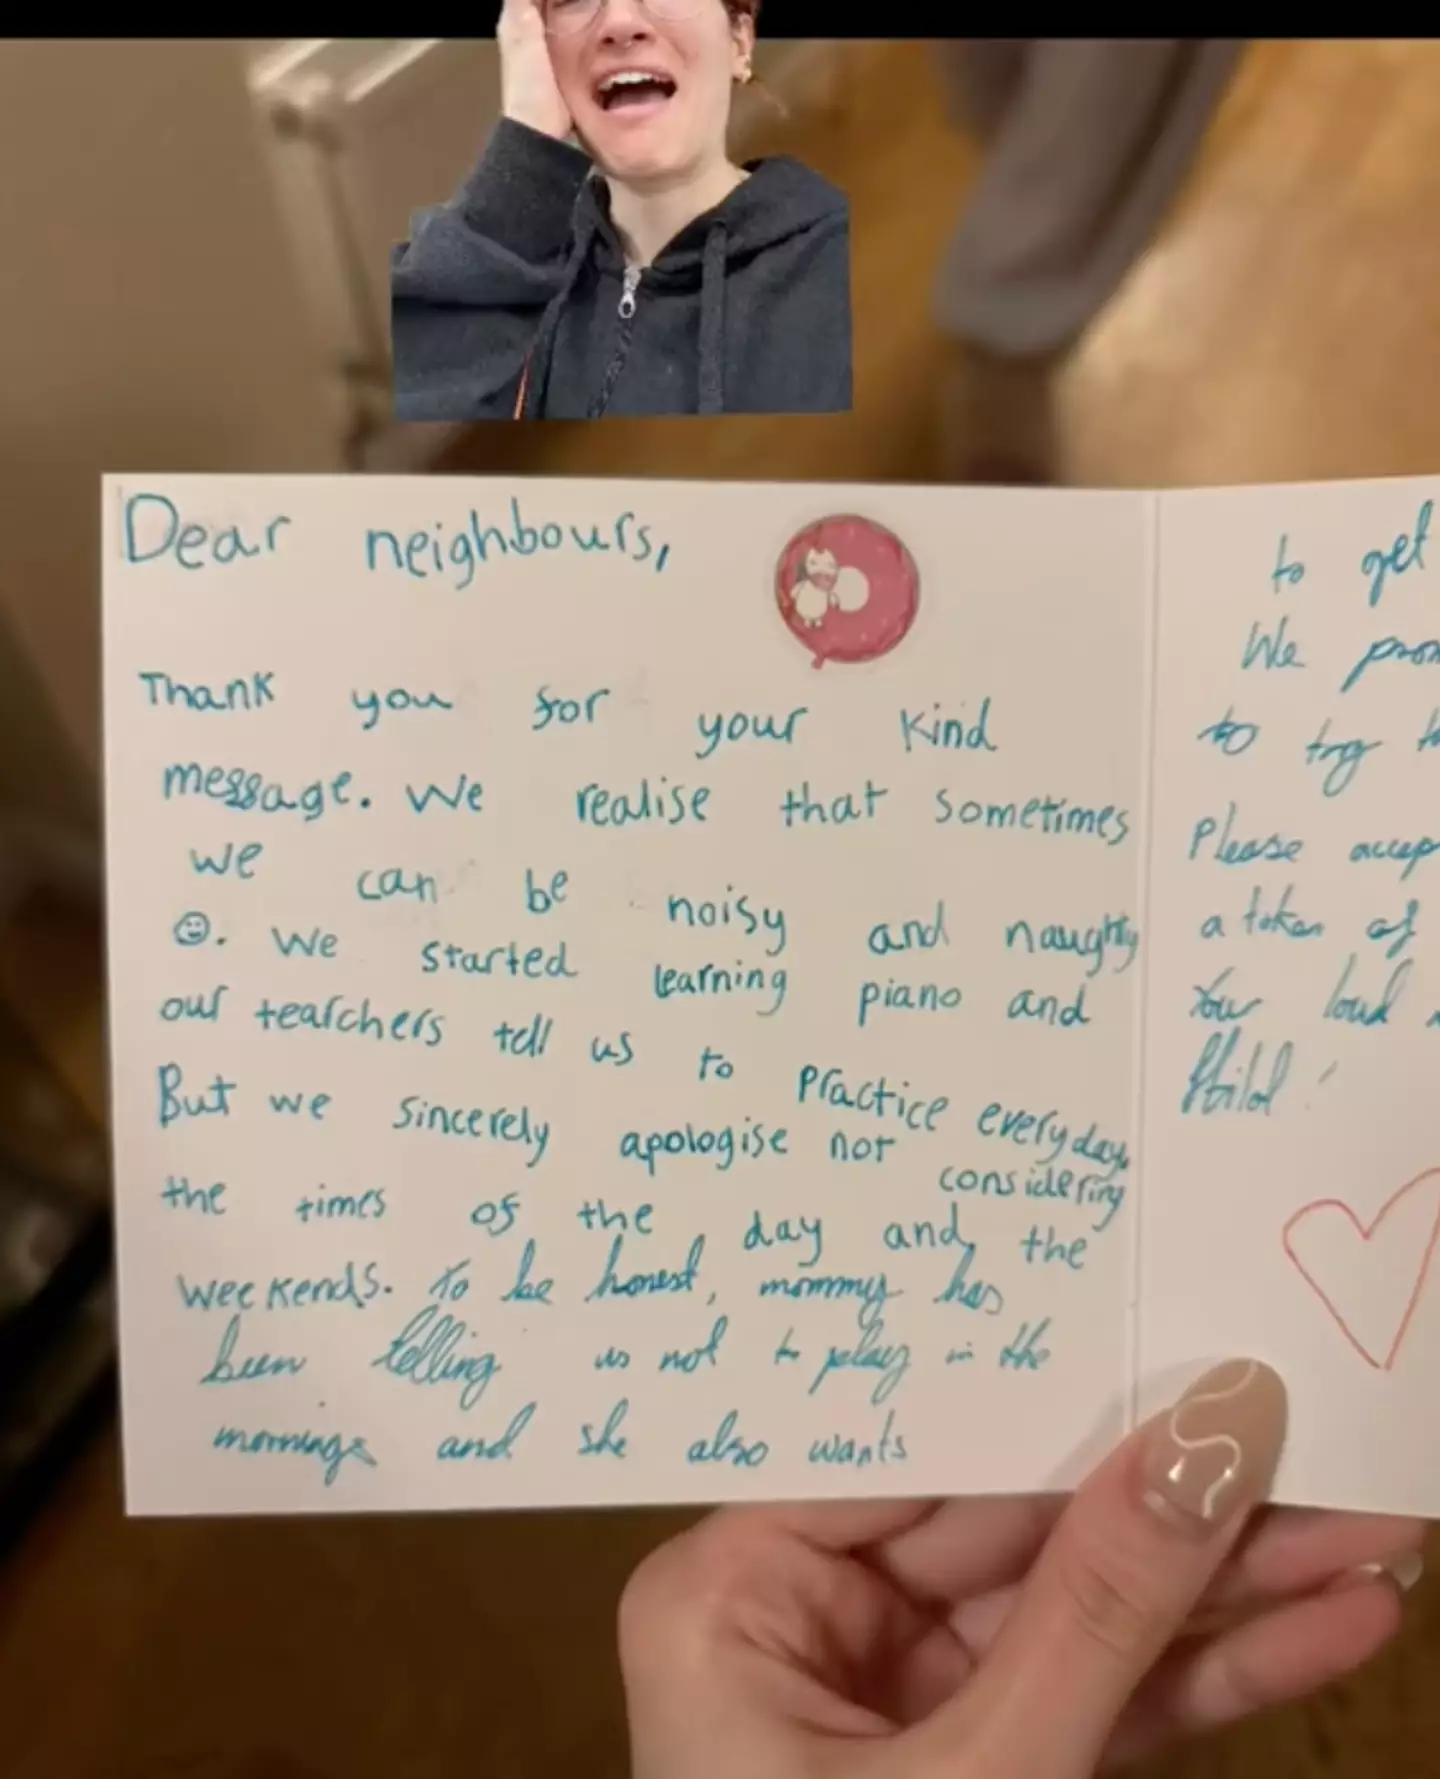 Dear neighbours,
Thank you for your kind
message. We realise that sometimes
we can be noisy and naughty
☺. We started learning piano and
our tearchers tell us to practice everyday.
But we sincerely apologise not considering
the times of the day and the
weekends. To be honest, mommy has
been telling us not to play in the
mornings and she also wants
to get
We
to try
Please
a token of
Your loud